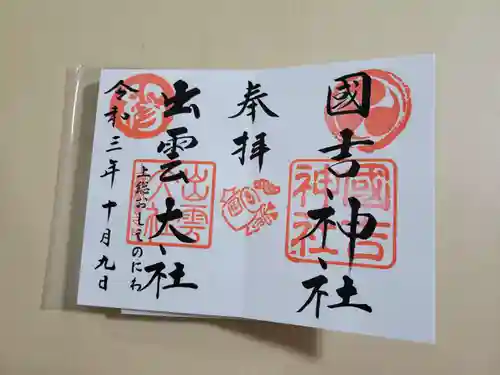 國吉神社
國吉
神社
奉拝
出雲大社
出雲
大社
上総おもてのにわ
令和三年十月九日